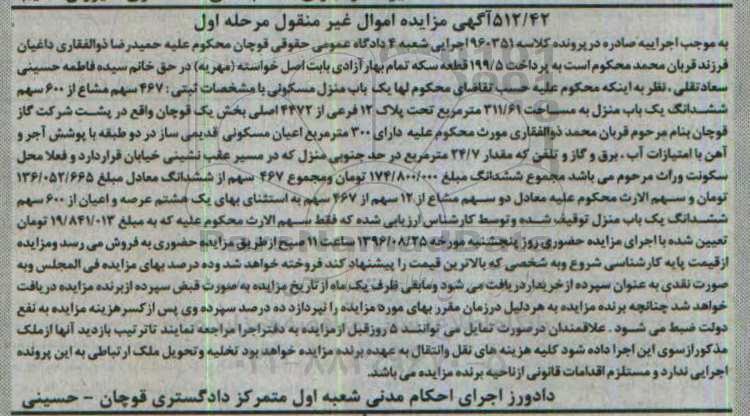 ۵۱۲/۴۲آگهی مزایده اموال غیر منقول مرحله اول
به موجب اجراییه صادره در پرونده کلاسه ۹۶۰۳۵۱ اجرایی شعبه ۴ دادگاه عمومی حقوقی قوچان محکوم علیه حمیدرضا ذوالفقاری داغیان
فرزند قربان محمد محکوم است به پرداخت ۱۹۹/۵ قطعه سکه تمام بهار آزادی بابت اصل خواسته (مهریه) در حق خانم سیده فاطمه حسینی
سعادتقلی . نظر به اینکه محکوم علیه حسب تقاضای محکوم لها یک باب منزل مسکونی با مشخصات ثبتی : ۴۶۷ سهم مشاع از ۶۰۰ سهم
ششدانگ یک باب منزل به مساحت ۳۱۱/۶۹ مترمربع تحت پلاک ۱۲ فرعی از ۴۴۷۲ اصلی بخش یک قوچان واقع در پشت شرکت گاز
قوچان بنام مرحوم قربان محمد ذوالفقاری مورث محکوم علیه دارای ۳۰۰ مترمربع اعیان مسکونی قدیمی ساز در دو طبقه با پوشش آجر و
آهن با امتیازات آب ، برق و گاز و تلفن که مقدار ۲۴/۷ مترمربع در حد جنوبی منزل که در مسیر عقب نشینی خیابان قرار دارد و فعلا محل
سکونت وراث مرحوم می باشد مجموع ششدانگ مبلغ ۱۷۴/۸۰۰/۰۰۰ تومان ومجموع ۴۶۷ سهم از ششدانگ معادل مبلغ ۱۳۶/۰۵۲/۶۶۵
تومان و سهم الارث محکوم علیه معادل دو سهم مشاع از ۱۲ سهم از ۴۶۷ سهم به استثنای بهای یک هشتم عرصه و اعیان از ۶۰۰ سهم
ششدانگ یک باب منزل توقیف شده وتوسط کارشناس ارزیابی شده که فقط سهم الارث محکوم علیه که به مبلغ ۱۹/۸۴۱/۰۱۳ تومان
تعیین شده با اجرای مزایده حضوری روز پنجشنبه مورخه ۱۳۹۶/۰۸/۲۵ ساعت ۱۱ صبح از طریق مزایده حضوری به فروش می رسد ومزایده
از قیمت پایه کارشناسی شروع وبه شخصی که بالاترین قیمت را پیشنهاد کند فروخته خواهد شد وده درصد بهای مزایده فی المجلس وبه
صورت نقدی به عنوان سپرده از خریدار دریافت می شود ومابقی ظرف یک ماه از تاریخ مزایده به صورت قبض سپرده از برنده مزایده دریافت
خواهد شد چنانچه برنده مزایده به هر دلیل درزمان مقرر بهای مورد مزایده را نپردازد ده درصد سپرده وی پس از کسر هزینه مزایده به نفع
دولت ضبط می شود . علاقمندان درصورت تمایل می توانند ۵ روز قبل از مزایده به دفتر اجرا مراجعه نمایند تا ترتیب بازدید آنها از ملک
مذکور از سوی این اجرا داده شود کلیه هزینه های نقل وانتقال به عهده برنده مزایده خواهد بود تخلیه وتحویل ملک ارتباطی به این پرونده
اجرایی ندارد و مستلزم اقدامات قانونی از ناحیه برنده مزایده می باشد.
دادورز اجرای احکام مدنی شعبه اول متمرکز دادگستری قوچان – حسینی